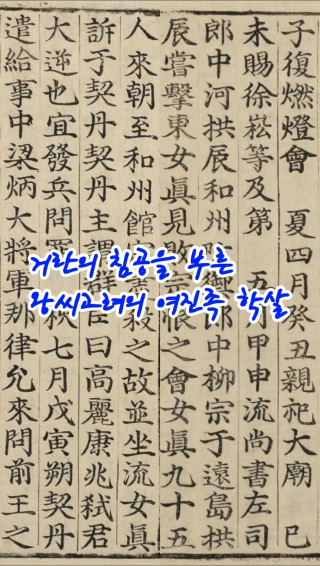 거란의 침공을 부른
왕씨고려의 여진족 학살
子復燃燈會 夏四月癸丑親祀大廟 已
未賜徐崧等及第 五月甲申流尚書左司
郎中河拱辰和州禦郎中柳宗于遠島拱
辰嘗擊東女眞見敗宗恨之會女眞九十五
人來朝至和州館殺之故並坐流女眞
訴于契丹契丹主謂群臣曰高麗康兆弑君
大逆也宜發兵問罪 秋七月戊寅朔契丹
遣給事中梁炳大將軍那律允來問前王之